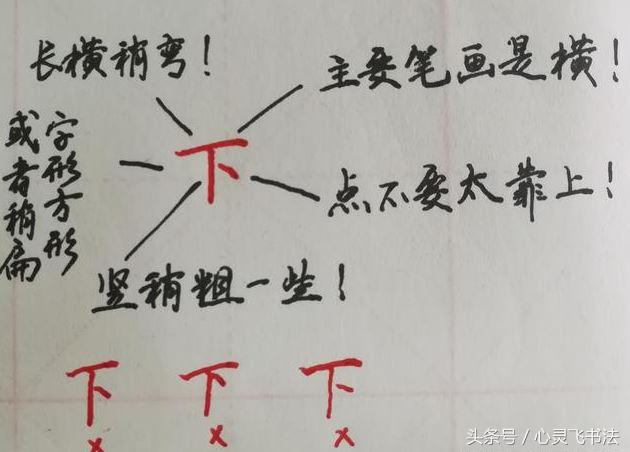 长横稍弯！
主要笔画是横！
字形方形
或者稍扁
下
点不要太靠上！
竖稍粗一些！
下 下 下
x x x
头条号／心灵飞书法